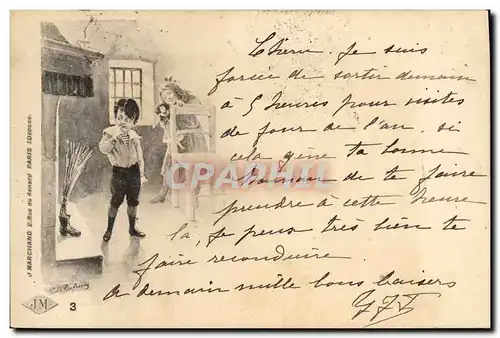 Chérie. Je suis
forcée de sortir demain
à 5 heures pour visites
de jour de l'an, si
cela gêne ta bonne
Maman de te faire
prendre à cette heure
là, je peux très bien te
faire reconduire.
A demain mille bons baisers
J MARCHAND. 2. Rue du Renard PARIS (Déposé.
CPArama.com
JM
3